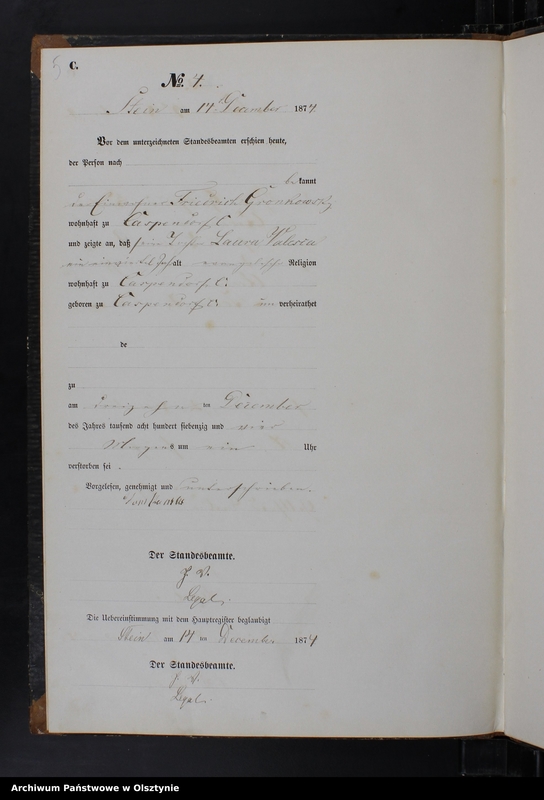 C.
No. 4.
Stein am 14 December 1874
Vor dem unterzeichneten Standesbeamten erschien heute,
der Person nach
bekannt
der Einwohner Friedrich Gronkowski
wohnhaft zu Carpendorf C.
und zeigte an, daß seine Tochter Laura Valeria
ein einviertel Jahr alt evangelischer Religion
wohnhaft zu Carpendorf C.
geboren zu Carpendorf C. unverheirathet
de
zu
am dreizehnten December
des Jahres tausend acht hundert siebenzig und vier
Morgens um ein Uhr
verstorben sei.
Vorgelesen, genehmigt und unterschrieben.
Der Standesbeamte.
J. V.
Legal.
Die Uebereinstimmung mit dem Hauptregister beglaubigt
Stein am 14 ten December 1874
Der Standesbeamte.
J. V.
Legal.
Archiwum Państwowe w Olsztynie